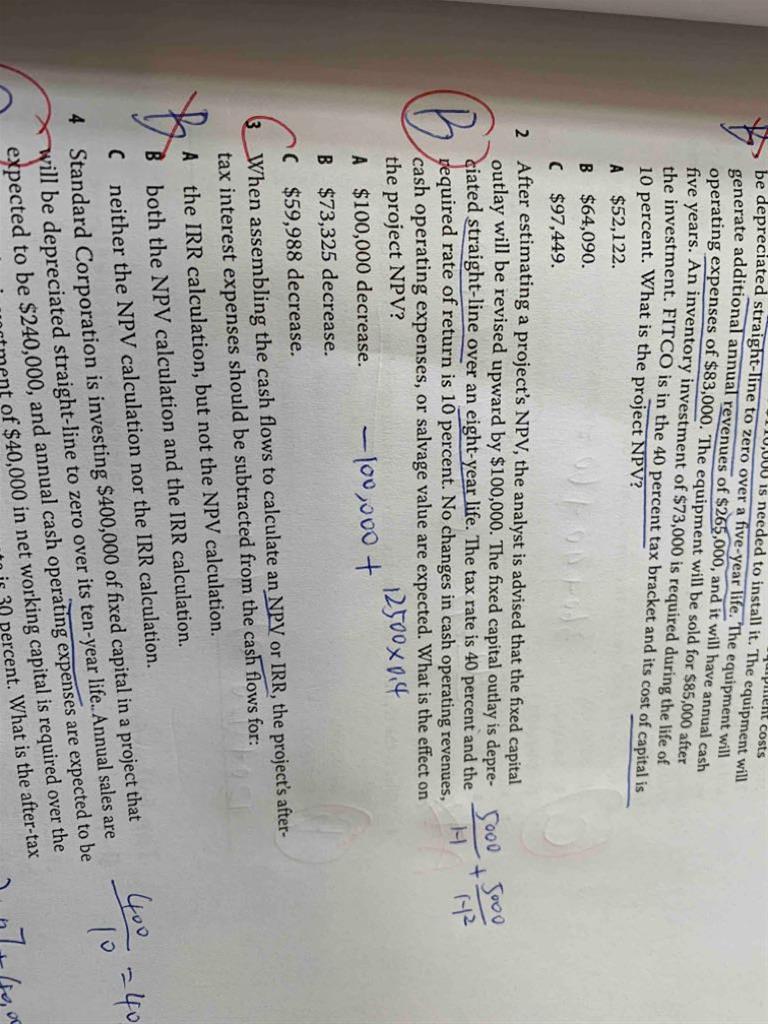 is needed to install it. The equipment will
be depreciated straight-line to zero over a five-year life. The equipment will
generate additional annual revenues of $265,000, and it will have annual cash
operating expenses of $83,000. The equipment will be sold for $85,000 after
five years. An inventory investment of $73,000 is required during the life of
the investment. FITCO is in the 40 percent tax bracket and its cost of capital is
10 percent. What is the project NPV?
A $52,122.
B $64,090.
C $97,449.
2 After estimating a project's NPV, the analyst is advised that the fixed capital
outlay will be revised upward by $100,000. The fixed capital outlay is depre-
ciated straight-line over an eight-year life. The tax rate is 40 percent and the
required rate of return is 10 percent. No changes in cash operating revenues,
cash operating expenses, or salvage value are expected. What is the effect on
the project NPV?
B
5000/1.1 + 5000/1.1^2
A $100,000 decrease.
B $73,325 decrease.
C $59,988 decrease.
-100,000 + 12500×0.4
3 When assembling the cash flows to calculate an NPV or IRR, the project's after-
tax interest expenses should be subtracted from the cash flows for:
C
B
A the IRR calculation, but not the NPV calculation.
B both the NPV calculation and the IRR calculation.
C neither the NPV calculation nor the IRR calculation.
4 Standard Corporation is investing $400,000 of fixed capital in a project that
will be depreciated straight-line to zero over its ten-year life. Annual sales are
expected to be $240,000, and annual cash operating expenses are expected to be
of $40,000 in net working capital is required over the
is 30 percent. What is the after-tax
400/10 = 40